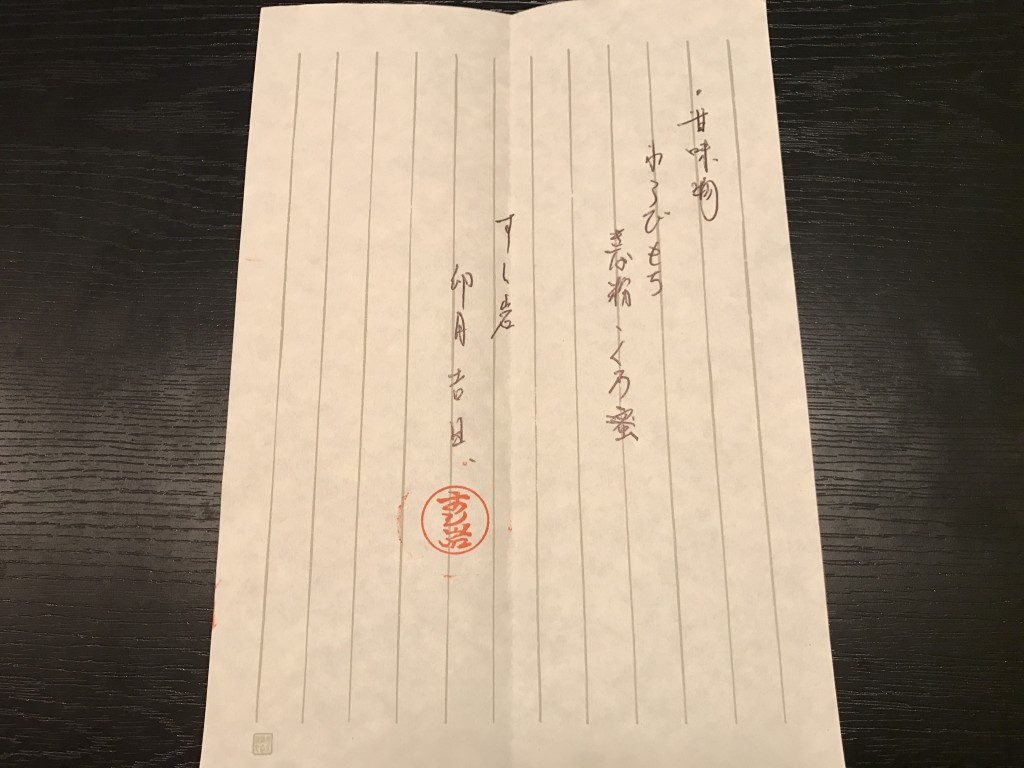 ・甘味物
わらびもち
きな粉、くろ蜜
すし岩
卯月吉日
すし岩